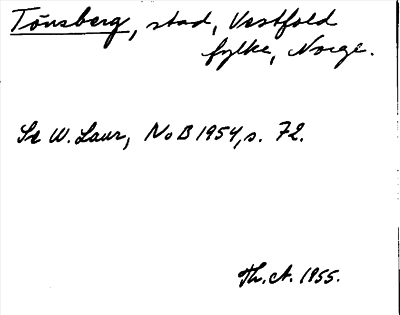 Tönsberg, stad, Vestfold
fylke, Norge.
Se W. Laur, NoB 1954, s. 72.
Th. A. 1955.